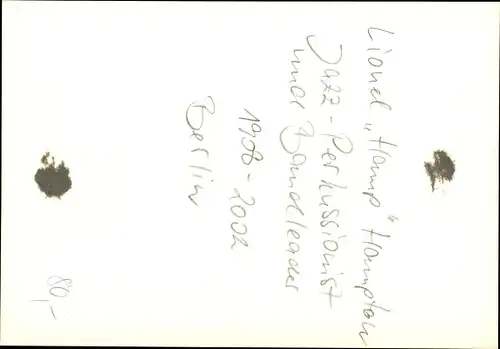 Lionel „Hamp“ Hampton
Jazz-Perkussionist
und Bandleader
1908-2002
Berlin
80,-